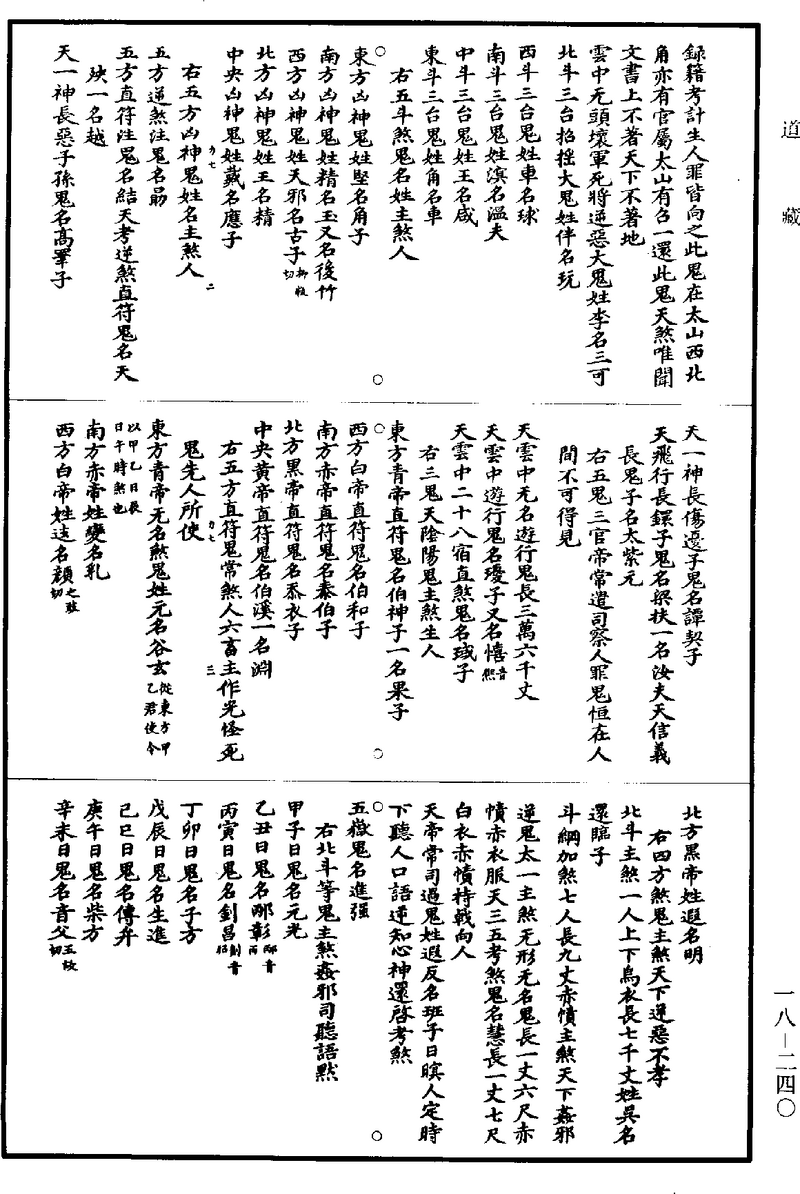 道藏
録籍考計生人罪皆向之此鬼在太山西北
角亦有官屬太山有名一還此鬼天煞唯聞
文書上不著天下不著地
雲中无頭壞軍死將逆惡大鬼姓李名三可
北斗三台招搖大鬼姓伴名玩
西斗三台鬼姓車名球
南斗三台鬼姓濱名溫夫
中斗三台鬼姓王名咸
東斗三台鬼姓角名車
右五斗煞鬼名姓主煞人
東方凶神鬼姓堅名角子
南方凶神鬼姓精名玉又名後竹
西方凶神鬼姓天邪名古子
北方凶神鬼姓王名精
中央凶神鬼姓戴名應子
右五方凶神鬼姓名主煞人
力七
二
五方逆煞注鬼名勗
五方直符注鬼名結天考逆煞直符鬼名天
殃一名越
天一神長惡子孫鬼名高睪子
天一神長傷憂子鬼名譚契子
天飛行長鏍子鬼名梁扶一名汝夫天信義
長鬼子名太紫元
右五鬼三官帝常遣司察人罪鬼恒在人
間不可得見
天雲中无名遊行鬼長三萬六千丈
天雲中遊行鬼名瓊子又名憘音熙
天雲中二十八宿直煞鬼名珬子
右三鬼天陰陽鬼主煞生人
東方青帝直符鬼名伯神子一名果子
西方白帝直符鬼名伯和子
南方赤帝直符鬼名泰伯子
北方黑帝直符鬼名忝衣子
中央黄帝直符鬼名伯溪一名淵
右五方直符鬼常煞人六畜主作光怪死
力七
三
鬼先人所使
東方青帝无名煞鬼姓元名谷玄從東方甲乙君使令
以甲乙日長日午時煞也
南方赤帝姓變名乳
西方白帝姓遠名顏
北方黑帝姓遐名明
右四方煞鬼主煞天下逆惡不孝
北斗主煞一人上下烏衣長七千丈姓吳名
還臨子
斗綱加煞七人長九丈赤幘主煞天下姦邪
逆鬼太一主煞无形无名鬼長一丈六尺赤
幘赤衣服天三五考煞鬼名慧長一丈七尺
白衣赤幘持戟向人
天帝常司過鬼姓遐反名班子日瞑人定時
下聽人口語逆知心神還啓考煞
五嶽鬼名進強
右北斗等鬼主煞姦邪司聽語黙
甲子日鬼名元光
乙丑日鬼名邴彰邴音丙
丙寅日鬼名釗昌釗音招
丁卯日鬼名子方
戊辰日鬼名生進
己巳日鬼名傅弁
庚午日鬼名柴方
辛未日鬼名音父
一八—二四〇